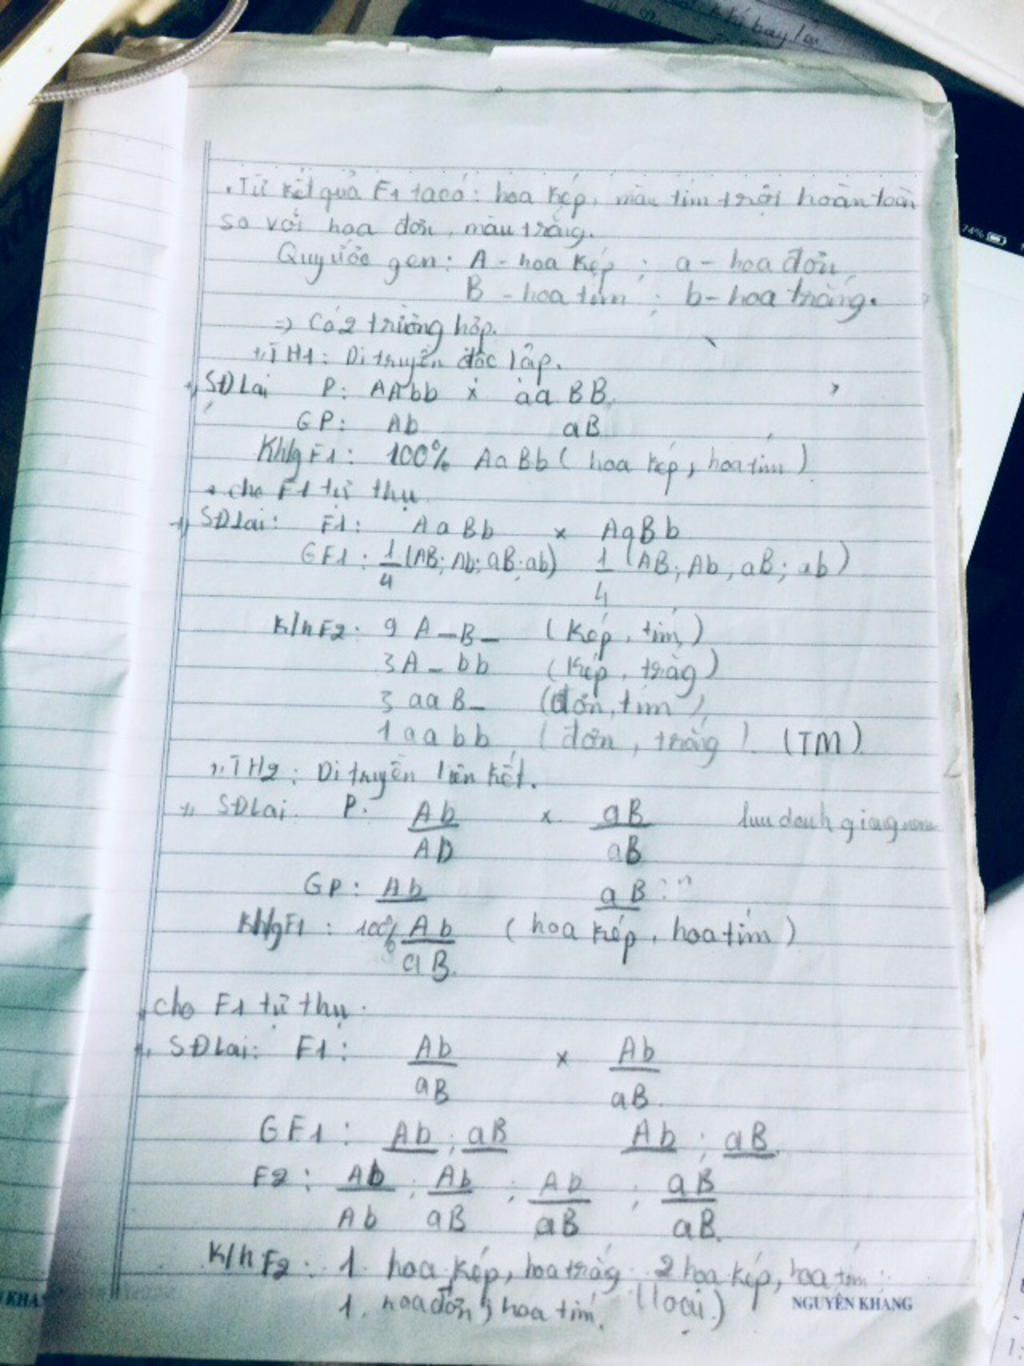 Từ kết quả F1 ta có: hoa kép, màu tím trội hoàn toàn
so với hoa đơn, màu trắng.
Quy ước gen: A - hoa kép ; a - hoa đơn
B - hoa tím ; b - hoa trắng.
=> Có 2 trường hợp.
TH1: Di truyền độc lập.
SĐLai P: AAbb x aaBB
GP: Ab aB
KH/g F1: 100% AaBb ( hoa kép, hoa tím )
cho F1 tự thụ
SĐLai: F1: AaBb x AaBb
GF1: 1/4 (AB; Ab; aB; ab) 1/4 (AB; Ab; aB; ab)
K/h F2: 9 A_B_ (Kép, tím)
3A_bb (kép, trắg)
3 aaB_ (đơn, tím)
1aabb (đơn, trắng). (TM)
TH2: Di truyền liên kết.
SĐLai. P: Ab/AD x aB/aB
GP: Ab aB
KH/g F1: 100% Ab/aB ( hoa kép, hoa tím )
cho F1 tự thụ.
SĐLai: F1: Ab/aB x Ab/aB
GF1: Ab ; aB Ab ; aB
F2: Ab/Ab ; Ab/aB ; Ab/aB ; aB/aB
K/h F2: 1 hoa kép, hoa trắg 2 hoa kép, hoa tím
1. hoa đơn, hoa tím. (loại)
NGUYÊN KHANG
74%